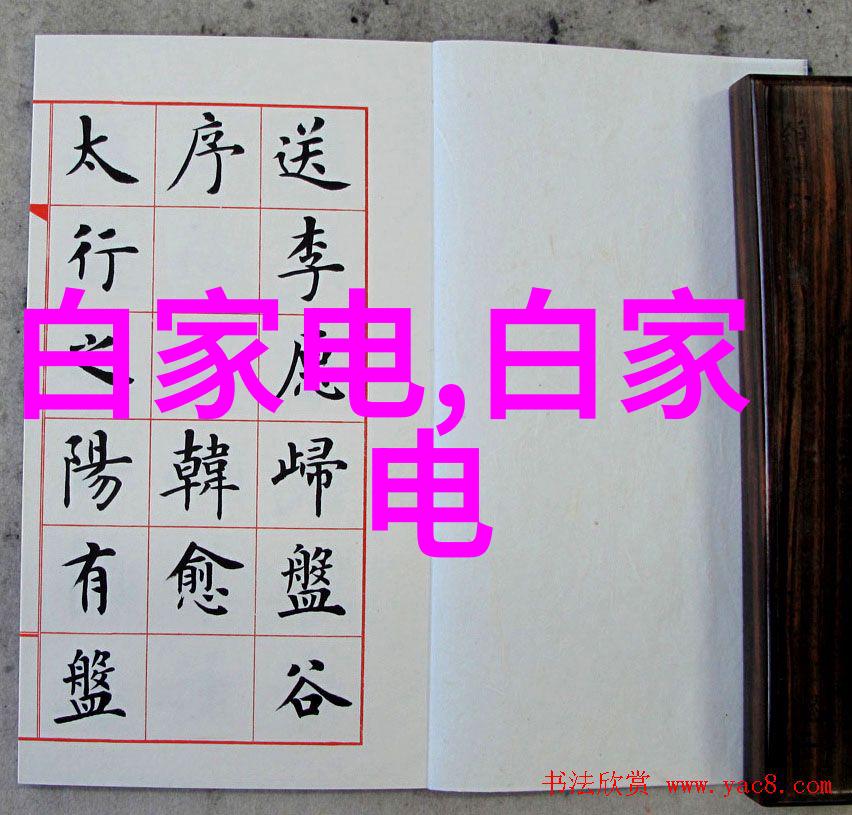 送李愿歸盤谷
序 韓愈
太行之陽有盤
白家电,白家
电
书法欣赏 www.yac8.com